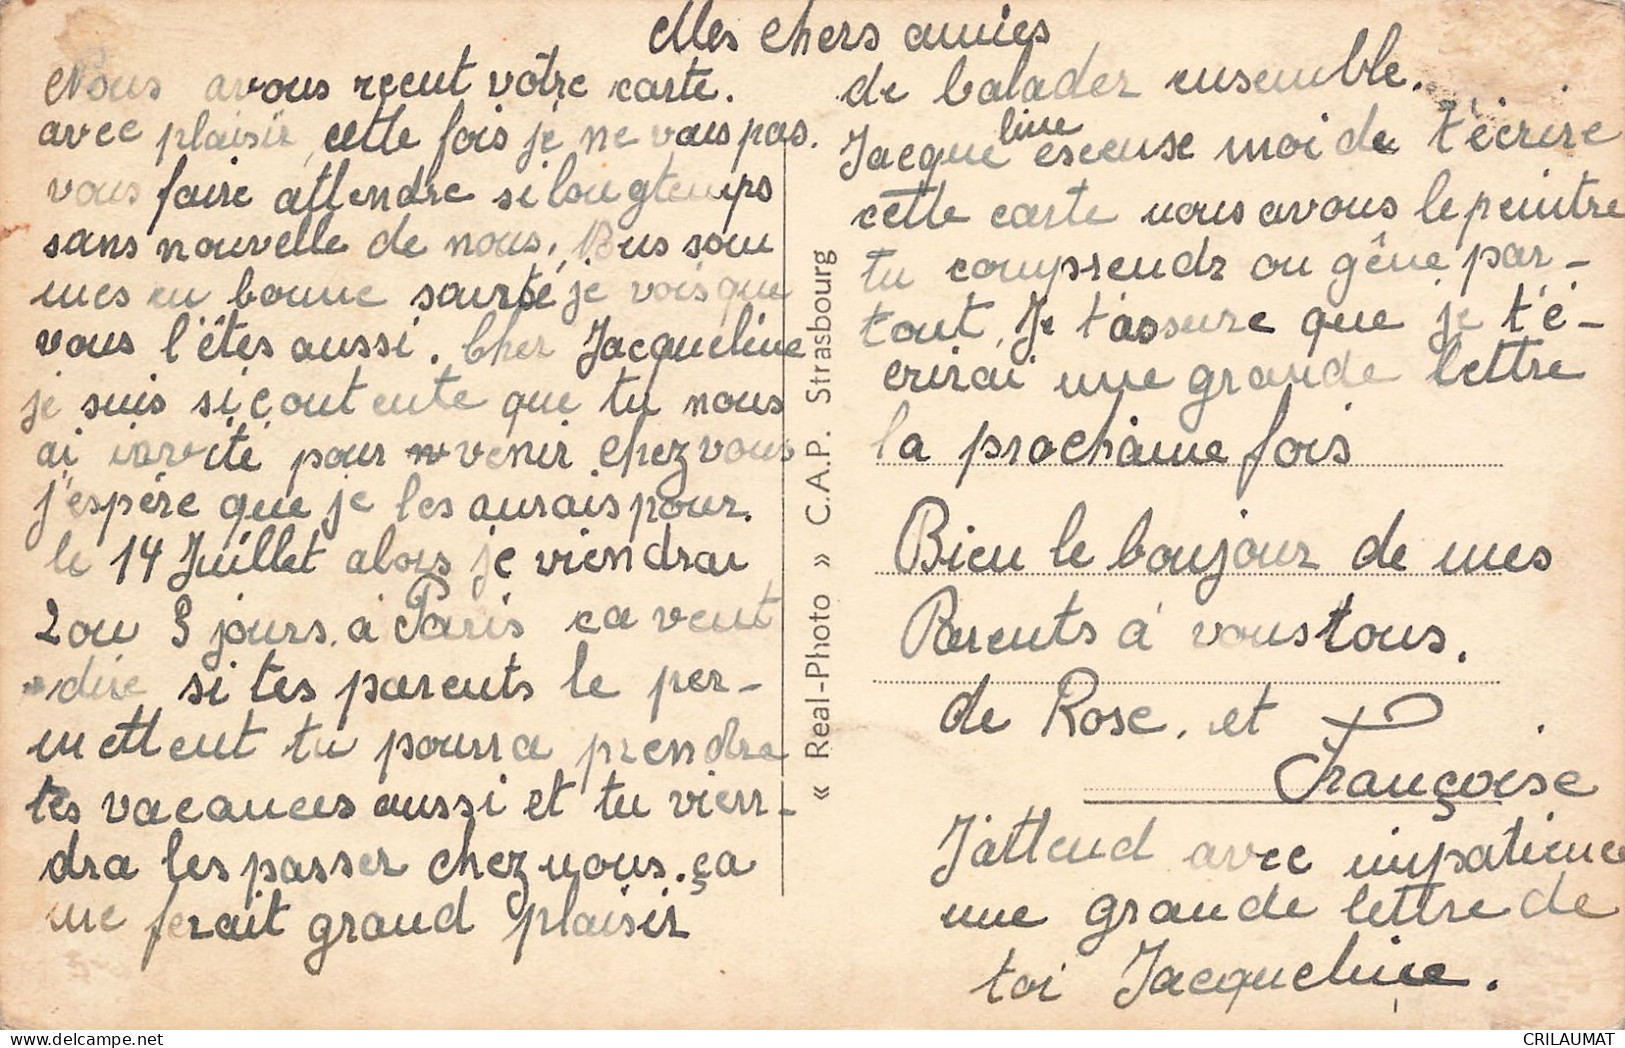 Mes chers amies
Nous avous reçut votre carte.
avec plaisir, cette fois je ne vais pas.
vous faire attendre si longtemps
sans nouvelle de nous. Nous som
mes en bonne sante, je vois que
vous l'êtes aussi. Cher Jacqueline
je suis si contente que tu nous
ai invité pour venir chez vous
j'espére que je les aurais pour.
le 14 Juillet alors je viendrai
2 ou 3 jours. à Paris ca veut
dire si tes parents le per-
mettent tu pourra prendre
tes vacances aussi et tu vien-
dra les passer chez nous. ça
me ferait grand plaisir
« Real-Photo » C.A.P. Strasbourg
de balader ensemble.
Jacqueline escuse moi de t'écrire
cette carte nous avous le peintre
tu comprends on gêne par-
tout. Je t'assure que je t'é-
crirai une grande lettre
la prochaine fois
Bien le boujour de mes
Parents à vous tous.
de Rose. et
Françoise
J'attend avec impatience
une grande lettre de
toi Jacqueline.
CRILAUMAT